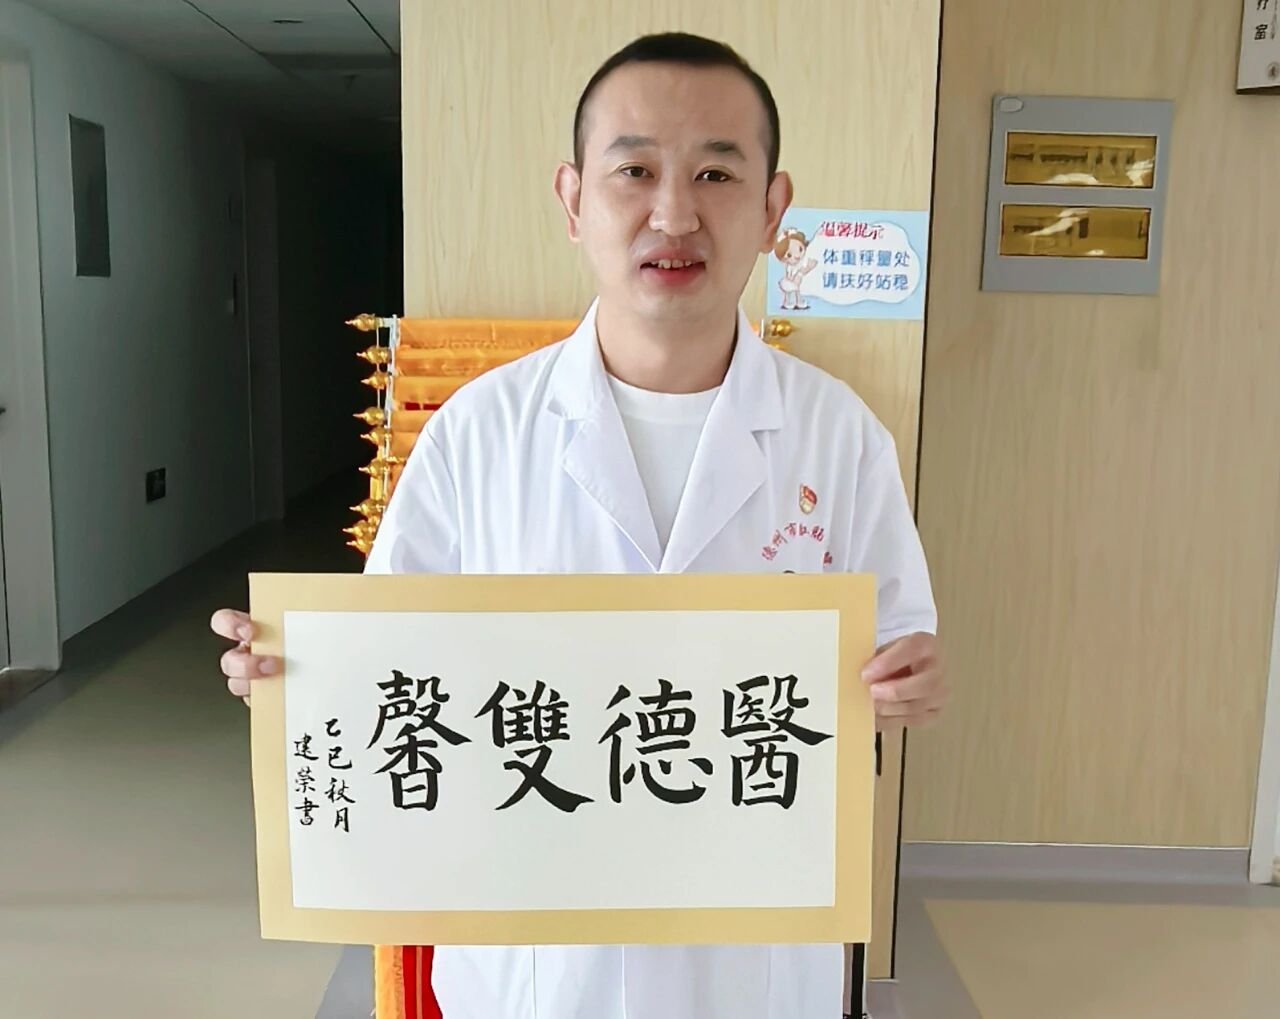 醫德雙馨
乙巳秋月
建榮書
温馨提示
体重秤量处
请扶好站稳
德州市
室